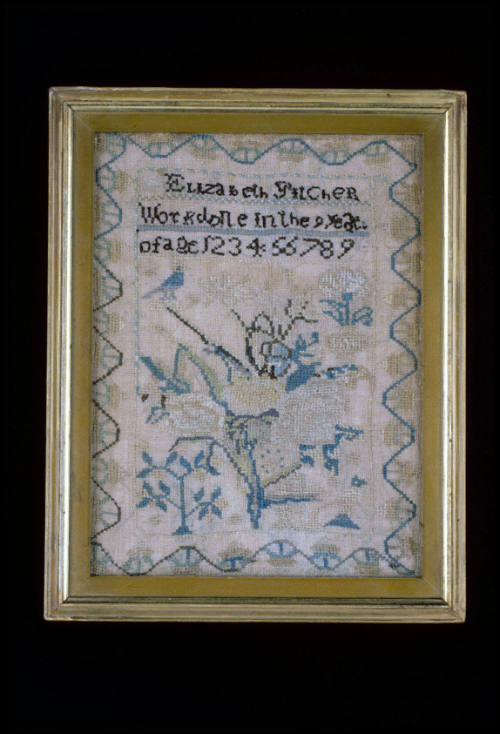 Elizabeth Pilcher
Work done in the 9 year
of age 1 2 3 4 5 6 7 8 9